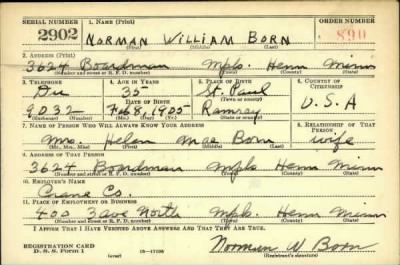 SERIAL NUMBER 1. NAME (Print) ORDER NUMBER
2902 NORMAN WILLIAM BORN 890
(First) (Middle) (Last)
2. ADDRESS (Print)
3624 Boardman Mpls. Henn Minn
(Number and street or R. F. D. number) (Town) (County) (State)
3. TELEPHONE 4. AGE IN YEARS 5. PLACE OF BIRTH 6. COUNTRY OF CITIZENSHIP
Du 35 St. Paul
DATE OF BIRTH (Town or county)
9032 Feb 8, 1905 Ramsey U.S.A
(Exchange) (Number) (Mo.) (Day) (Yr.) (State or country)
7. NAME OF PERSON WHO WILL ALWAYS KNOW YOUR ADDRESS 8. RELATIONSHIP OF THAT PERSON
Mrs Helen Mae Born wife
(Mr., Mrs., Miss) (First) (Middle) (Last)
9. ADDRESS OF THAT PERSON
3624 Boardman Mpls Henn Minn
(Number and street or R. F. D. number) (Town) (County) (State)
10. EMPLOYER'S NAME
Crane Co.
11. PLACE OF EMPLOYMENT OR BUSINESS
400 3 ave North Mpls. Henn Minn
(Number and street or R. F. D. number) (Town) (County) (State)
I AFFIRM THAT I HAVE VERIFIED ABOVE ANSWERS AND THAT THEY ARE TRUE.
REGISTRATION CARD
D. S. S. Form 1 (over) 16—17105 Norman W Born
(Registrant's signature)